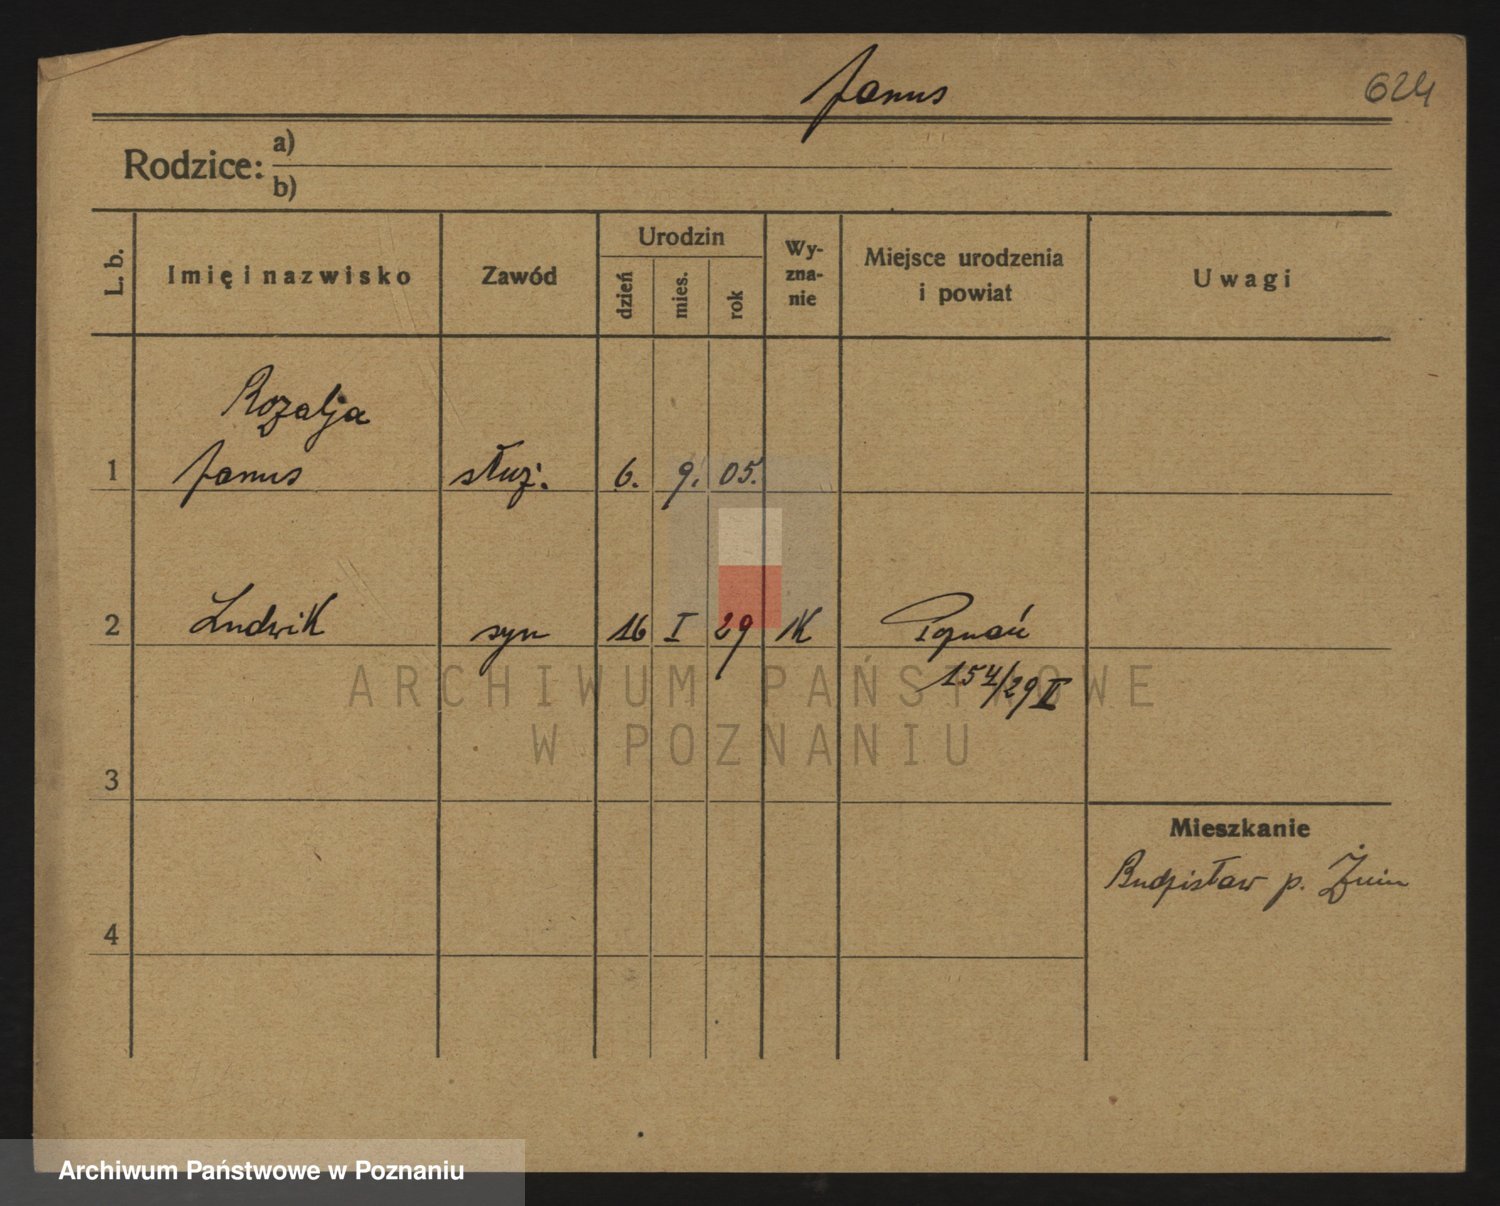 Janus
624
Rodzice: a)
b)
L. b.
Imię i nazwisko
Zawód
Urodzin
dzień
mies.
rok
Wy-
zna-
nie
Miejsce urodzenia
i powiat
Uwagi
Rozalja
1 Janus służ. 6. 9. 05.
2 Ludwik syn 16 I 29 K Poznań
154/29 II
ARCHIWUM PAŃSTWOWE
W POZNANIU
3
Mieszkanie
Budzisław p. Żnin
4
Archiwum Państwowe w Poznaniu